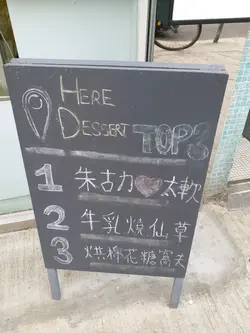 HERE
DESSERT TOP3
1 朱古力太軟
2 牛乳燒仙草
3 烘棉花糖窩夫